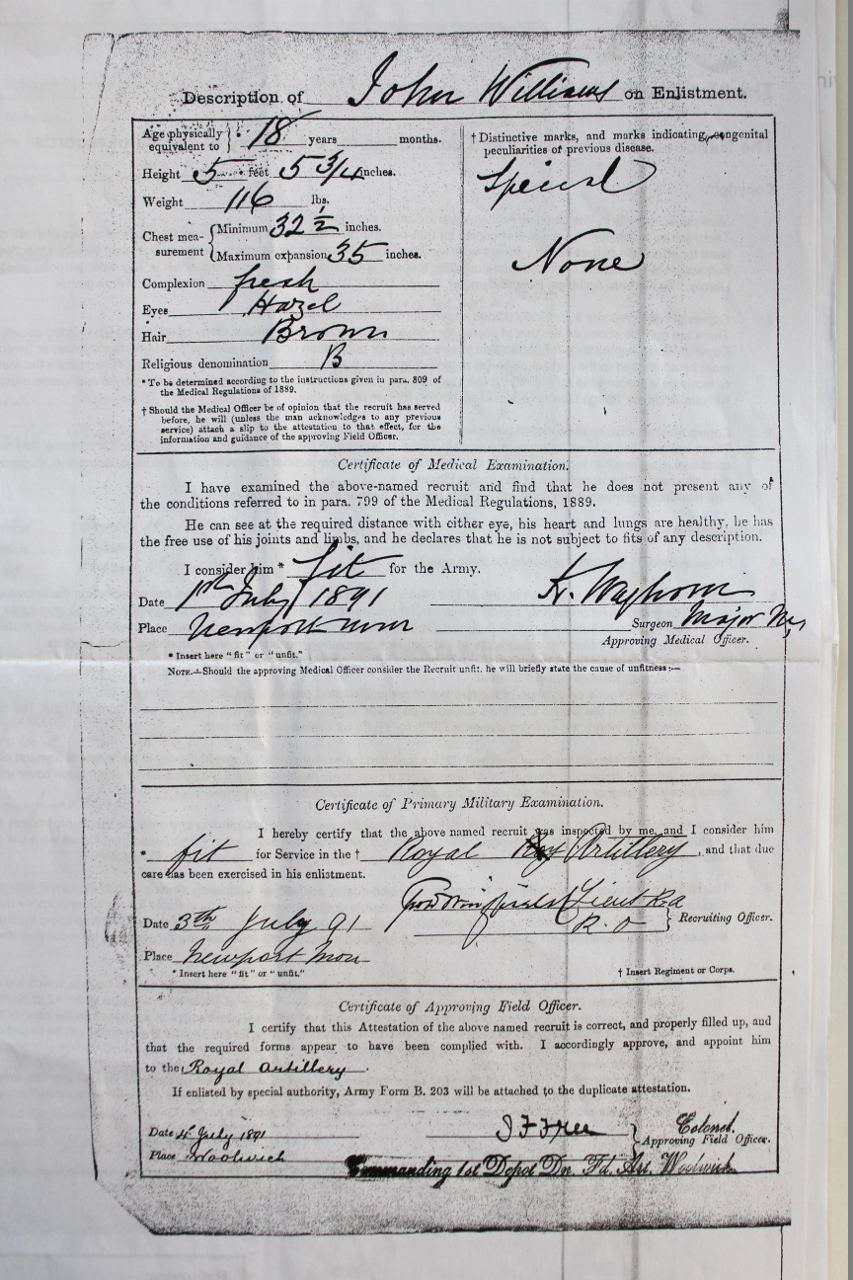 Description of John Williams on Enlistment.
Age physically equivalent to } * 18 years months.
Height 5 feet 5 3/4 inches.
Weight 116 lbs.
Chest mea-surement { Minimum 32 1/2 inches.
Maximum expansion 35 inches.
Complexion fresh
Eyes Hazel
Hair Brown
Religious denomination B
* To be determined according to the instructions given in para. 809 of
the Medical Regulations of 1889.
† Should the Medical Officer be of opinion that the recruit has served
before, he will (unless the man acknowledges to any previous
service) attach a slip to the attestation to that effect, for the
information and guidance of the approving Field Officer.
† Distinctive marks, and marks indicating congenital
peculiarities of previous disease.
Special
None
Certificate of Medical Examination.
I have examined the above-named recruit and find that he does not present any of
the conditions referred to in para. 799 of the Medical Regulations, 1889.
He can see at the required distance with either eye, his heart and lungs are healthy, he has
the free use of his joints and limbs, and he declares that he is not subject to fits of any description.
I consider him * fit for the Army.
Date 1st July 1891
Place Newport Mon
Surgeon Major
Approving Medical Officer.
* Insert here "fit" or "unfit."
NOTE.—Should the approving Medical Officer consider the Recruit unfit, he will briefly state the cause of unfitness:—
Certificate of Primary Military Examination.
I hereby certify that the above named recruit was inspected by me, and I consider him
* fit for Service in the † Royal Artillery, and that due
care has been exercised in his enlistment.
Lieut R.A
Date 3rd July 91 R.O } Recruiting Officer.
Place Newport Mon
* Insert here "fit" or "unfit." † Insert Regiment or Corps.
Certificate of Approving Field Officer.
I certify that this Attestation of the above named recruit is correct, and properly filled up, and
that the required forms appear to have been complied with. I accordingly approve, and appoint him
to the Royal Artillery.
If enlisted by special authority, Army Form B. 203 will be attached to the duplicate attestation.
Date 4 July 1891 Colonel.
} Approving Field Officer.
Place Woolwich
Commanding 1st Depot Dn. Fd. Art. Woolwich